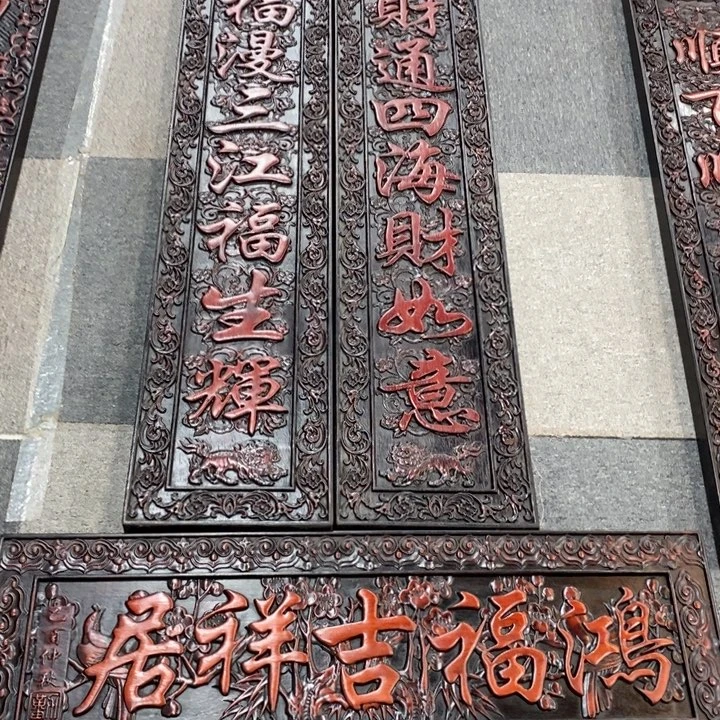 財通四海財如意
福漫三江福生輝
鴻福吉祥居
順下順